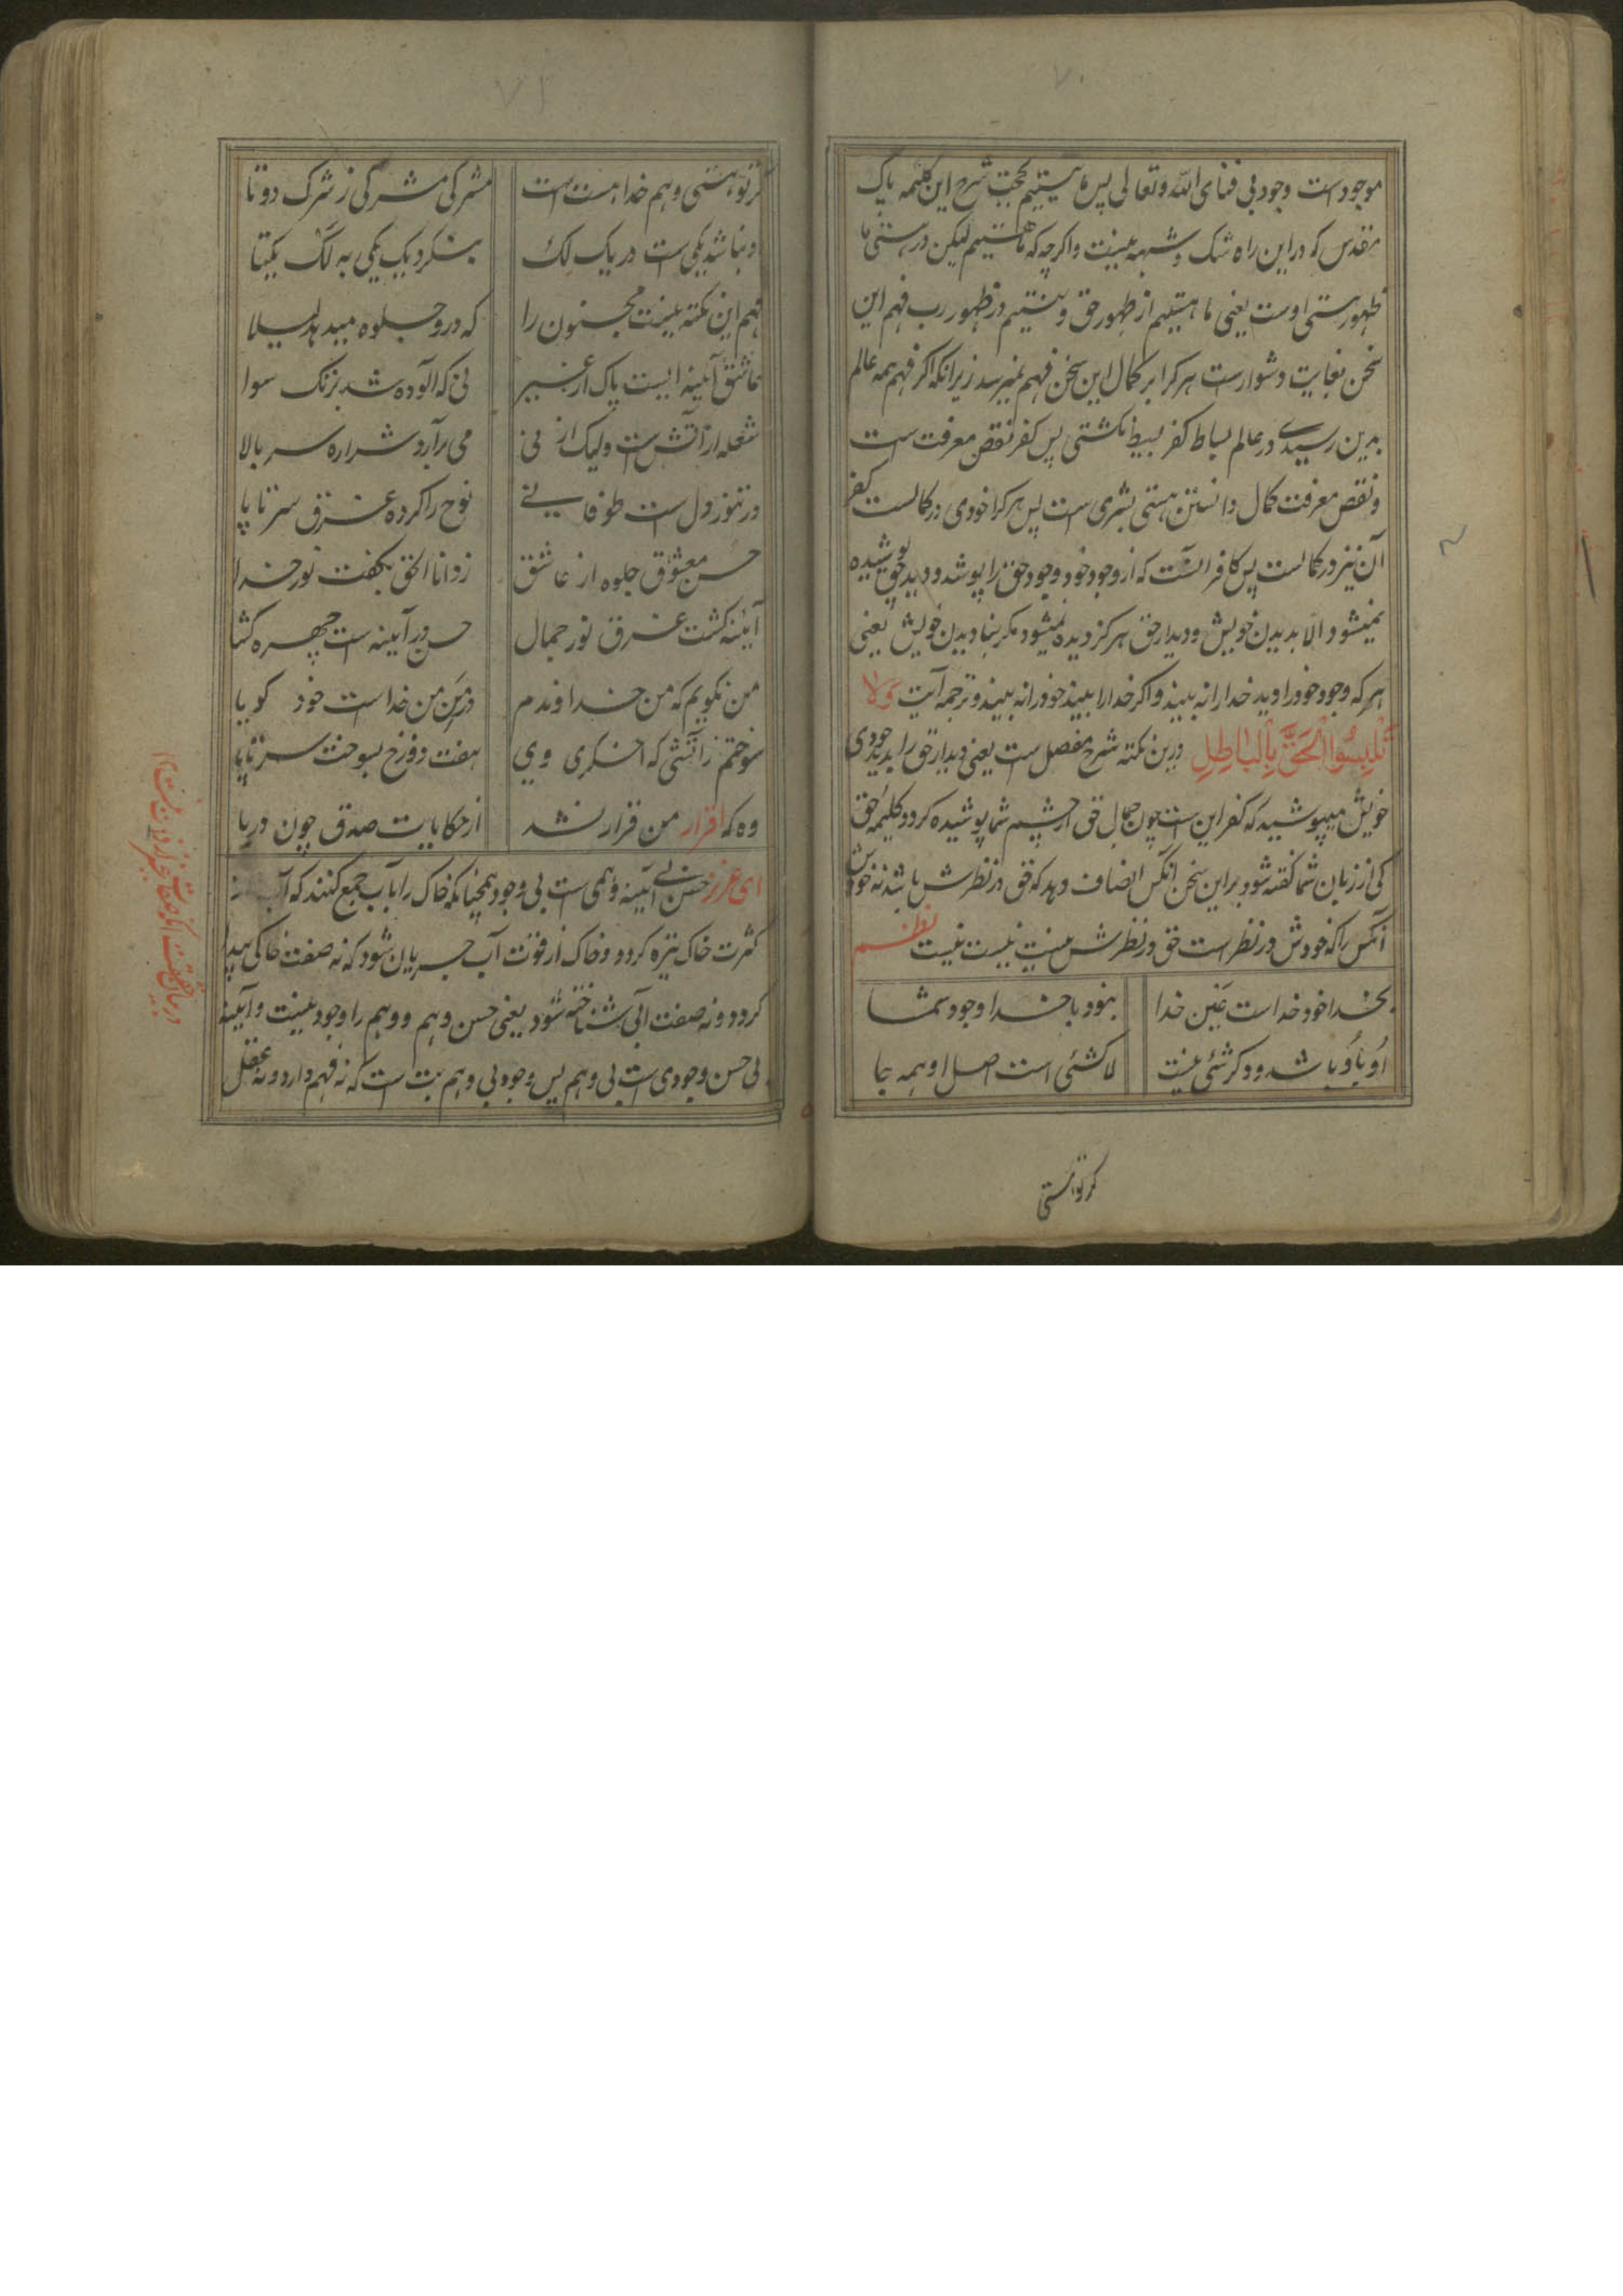 ۷۰
موجود است وجود بی فنای الله وتعالی پس ما نیستیم بحجت شرح این کلیمه پاک
مقدس که در این راه شک و شبهه نیست واکرچه که ما هستیم لیکن در هستی ما
ظهور هستی اوست یعنی ما هستیم از ظهور حق و نیستیم در ظهور رب فهم این
سخن بغایت دشوار است هر کرا بر کمال این سخن فهم نمیرسد زیرانکه اکر فهم همه عالم
بدین رسیدی در عالم بساط کفر بسیط نکشتی پس کفر نقص معرفت است
ونقص معرفت کمال دانستن هستی بشری است پس هر کرا خودی در کمالست کفر
آن نیز در کمالست پس کافر آنست که از وجود خود وجود حق را پوشد و دید حق پوشیده
نمیشود الا بدیدن خویش و دیدار حق هرکز دیده نمیشود مکر بنادیدن خویش یعنی
هر که وجود خود را دید خدا را نه بیند و اکر خدا را بیند خود را نه بیند و ترجمه آیت وَلَا
تَلْبِسُوا الْحَقَّ بِالْبَاطِلِ درین نکته شرح مفصل است یعنی دیدار حق را بدید خودی
خویش میپوشید که کفر این است چون جمال حق از چشم شما پوشیده کردد کلیمه حق
کی از زبان شما کفته شود بر این سخن آنکس انصاف دهد که حق در نظرش باشد نه خودش
آنکس را که خودش در نظر است حق در نظرش نیست نیست نیست نظم
بخدا خود خداست عین خدا    نبود با خدا وجود شما
او باو باشد و دکر شئی نیست    لاشئی است اصل او همه جا
کر تو هستی
۷۱
کر تو هستی و هم خدا هست است    مشرکی مشرکی ز شرک دوتا
دو نباشد یکی است در یک لک    بنکر دیک یکی به لک یکتا
فهم این نکته نیست مجنون را    که درو جلوه میدهد لیلا
عاشق آئینه ایست پاک از غیر    نی که آلوده شد بزنک سوا
شعله از آتش است ولیک از نی    می برآرد شراره سر بالا
در تنور دل است طوفانی    نوح را کرده غرق سر تا پا
حسن معشوق جلوه از عاشق    زو انا الحق بکفت نور خدا
آئینه کشت غرق نور جمال    حسن در آئینه است چهره کشا
من نکویم که من خداوندم    در من من خداست خود کویا
سوختم ز آتشی که اخکری وی    هفت دوزخ بسوخت سر تا پا
وه که اقرار من قرار نشد    از حکایات صدق چون دریا
ای عزیز حسن بی آئینه وهمی است بی وجود همچنانکه خاک را با آب جمع کنند که آب از
کثرت خاک تیره کردد و خاک از قوت آب جریان شود که نه صفت خاکی پیدا
کردد و نه صفت آبی شناخته شود یعنی حسن وهم و وهم را وجود نیست و آئینه
بی حسن وجودی است بی وهم پس وجود بی وهم بت است که نه فهم دارد و نه عقل